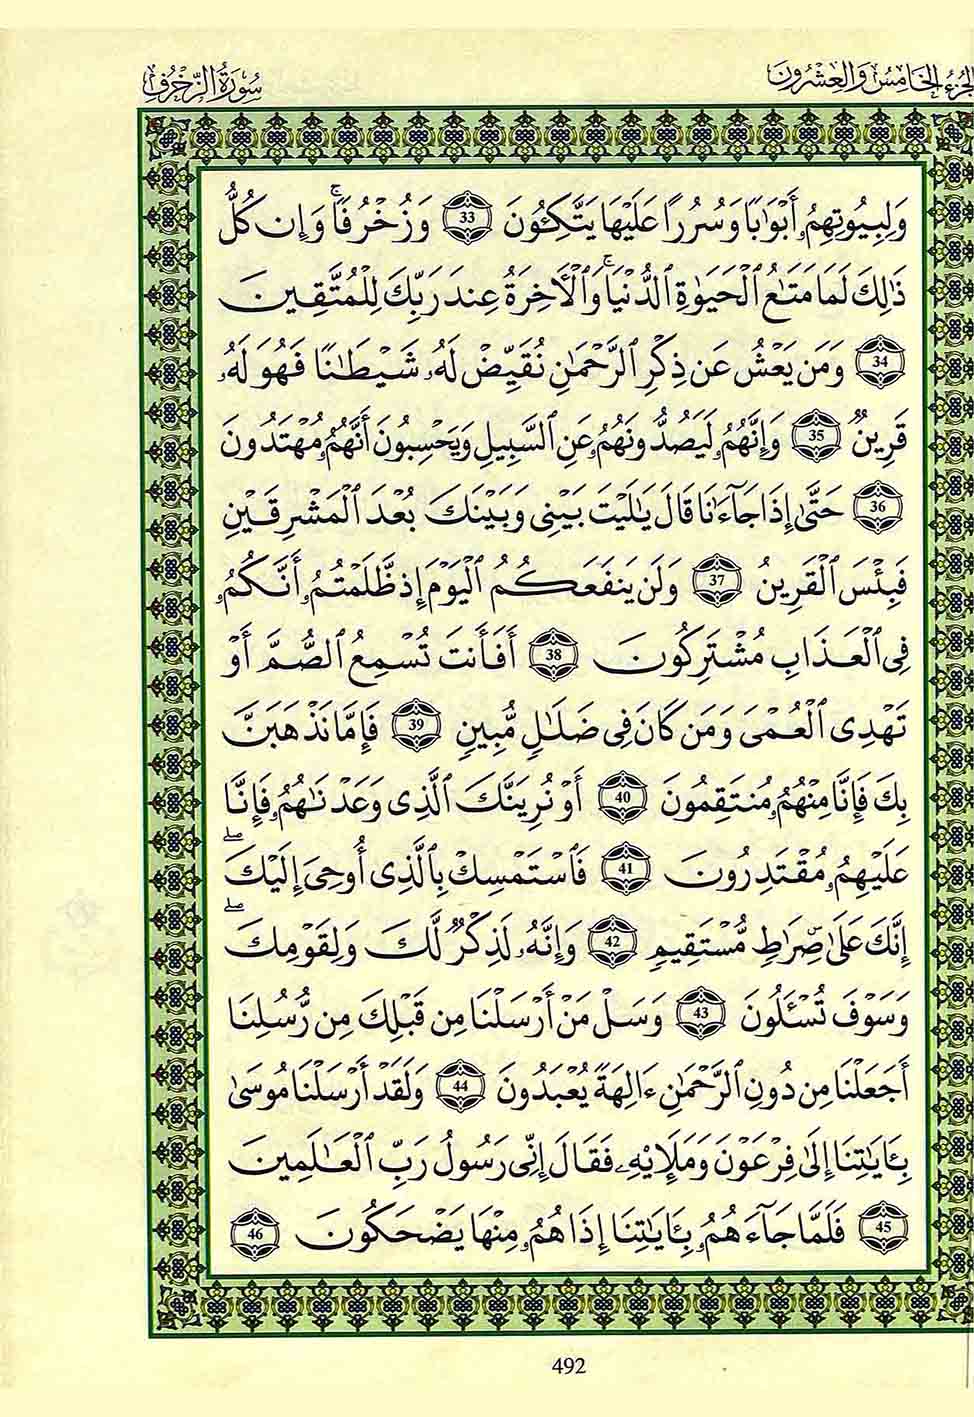 الجزء الخامس والعشرون
سورة الزخرف
وَلِبِيُوتِهِمُۥٓ أَبْوَٰبًا وَسُرُرًا عَلَيْهَا يَتَّكِـُٔونَ 33 وَزُخْرُفًاۚ وَإِن كُلُّ
ذَٰلِكَ لَمَا مَتَٰعُ ٱلْحَيَوٰةِ ٱلدُّنْيَاۚ وَٱلْأٓخِرَةُ عِندَ رَبِّكَ لِلْمُتَّقِينَ
34 وَمَن يَعْشُ عَن ذِكْرِ ٱلرَّحْمَٰنِ نُقَيِّضْ لَهُۥ شَيْطَٰنًا فَهُوَ لَهُۥ
قَرِينٌ 35 وَإِنَّهُمُۥ لَيَصُدُّونَهُمُۥ عَنِ ٱلسَّبِيلِ وَيَحْسِبُونَ أَنَّهُمُۥ مُهْتَدُونَ
36 حَتَّىٰٓ إِذَا جَآءَٰنَا قَالَ يَٰلَيْتَ بَيْنِى وَبَيْنَكَ بُعْدَ ٱلْمَشْرِقَيْنِ
فَبِئْسَ ٱلْقَرِينُ 37 وَلَن يَنفَعَكُمُ ٱلْيَوْمَ إِذ ظَّلَمْتُمُۥٓ أَنَّكُمُۥ
فِى ٱلْعَذَابِ مُشْتَرِكُونَ 38 أَفَأَنتَ تُسْمِعُ ٱلصُّمَّ أَوْ
تَهْدِى ٱلْعُمْىَ وَمَن كَانَ فِى ضَلَٰلٍ مُّبِينٍ 39 فَإِمَّا نَذْهَبَنَّ
بِكَ فَإِنَّا مِنْهُمُۥ مُنتَقِمُونَ 40 أَوْ نُرِيَنَّكَ ٱلَّذِى وَعَدْنَٰهُمُۥ فَإِنَّا
عَلَيْهِمُۥ مُقْتَدِرُونَ 41 فَٱسْتَمْسِكْ بِٱلَّذِىٓ أُوحِىَ إِلَيْكَۖ
إِنَّكَ عَلَىٰ صِرَٰطٍ مُّسْتَقِيمٍ 42 وَإِنَّهُۥ لَذِكْرٌ لَّكَ وَلِقَوْمِكَۖ
وَسَوْفَ تُسْـَٔلُونَ 43 وَسَلْ مَنْ أَرْسَلْنَا مِن قَبْلِكَ مِن رُّسُلِنَآ
أَجَعَلْنَا مِن دُونِ ٱلرَّحْمَٰنِ ءَالِهَةً يُعْبَدُونَ 44 وَلَقَدْ أَرْسَلْنَا مُوسَىٰ
بِـَٔايَٰتِنَآ إِلَىٰ فِرْعَوْنَ وَمَلَإِيْهِۦ فَقَالَ إِنِّى رَسُولُ رَبِّ ٱلْعَٰلَمِينَ
45 فَلَمَّا جَآءَهُمُۥ بِـَٔايَٰتِنَآ إِذَا هُمُۥ مِنْهَا يَضْحَكُونَ 46
492